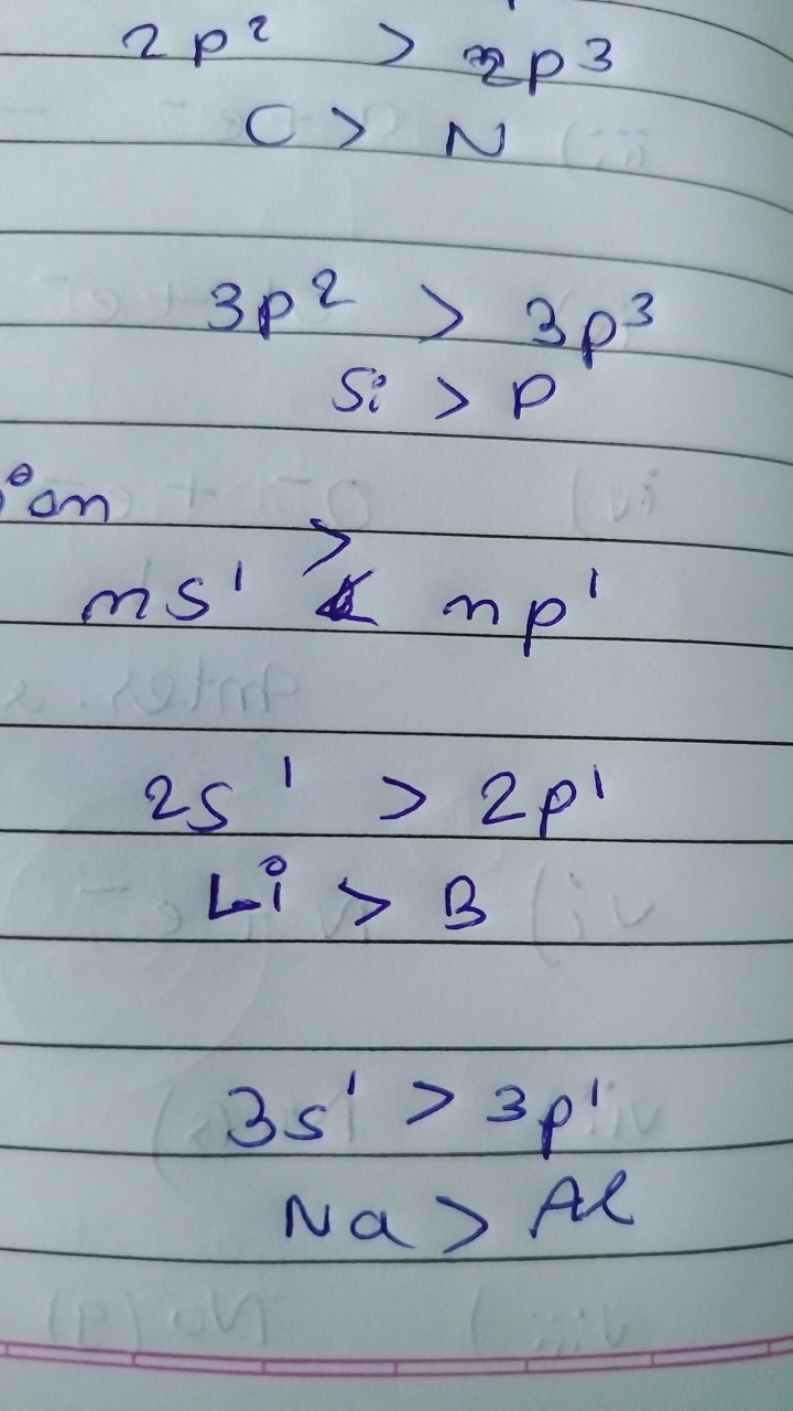 2p² > 2p³
C > N
3p² > 3p³
Si > P
ion
ns¹ > np¹
2s¹ > 2p¹
Li > B
3s¹ > 3p¹
Na > Al